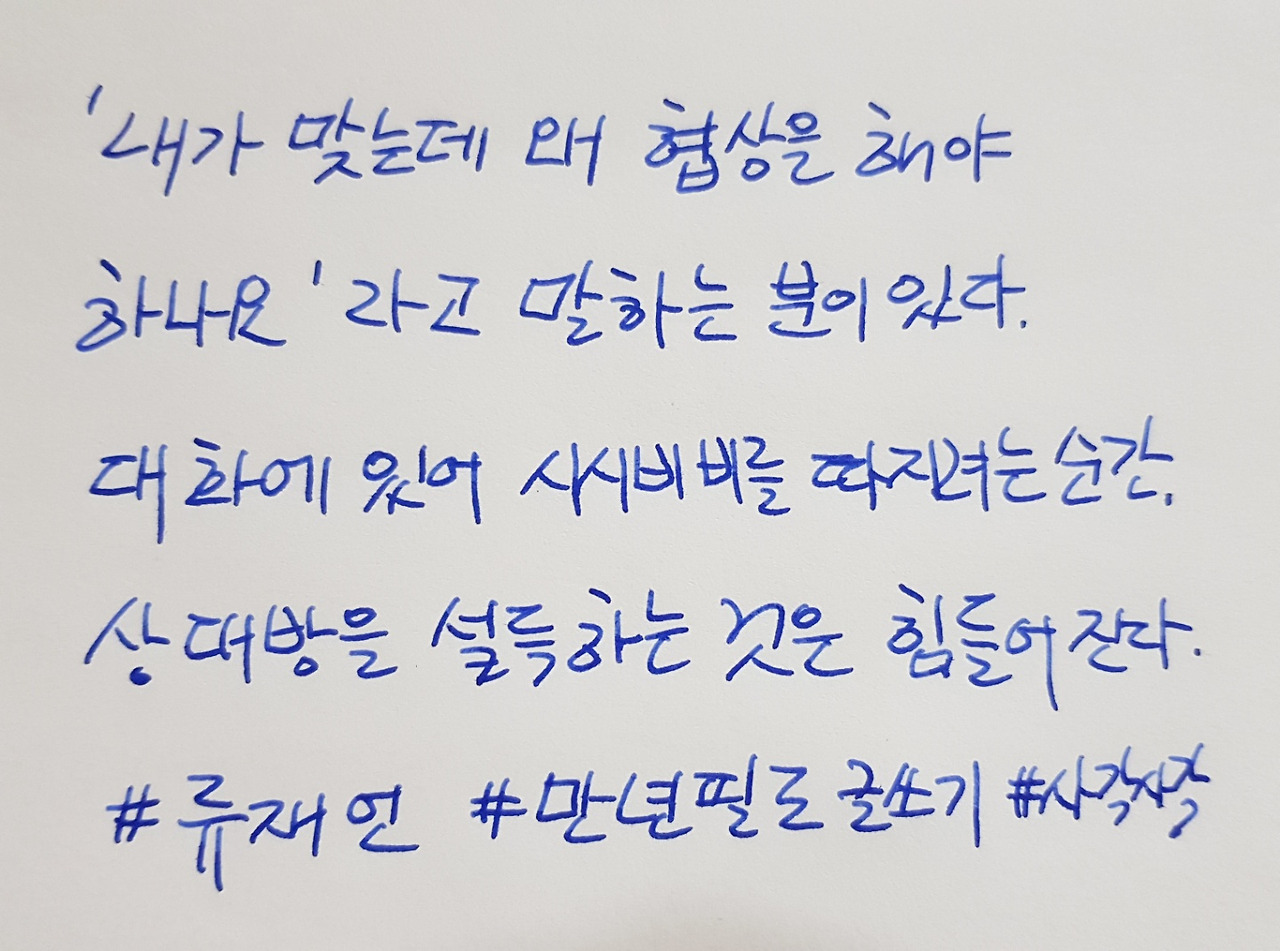 '내가 맞는데 왜 협상을 해야
하나요'라고 말하는 분이 있다.
대화에 있어 시시비비를 따지려는 순간,
상대방을 설득하는 것은 힘들어진다.
#류재언 #만년필로글쓰기 #사각사각